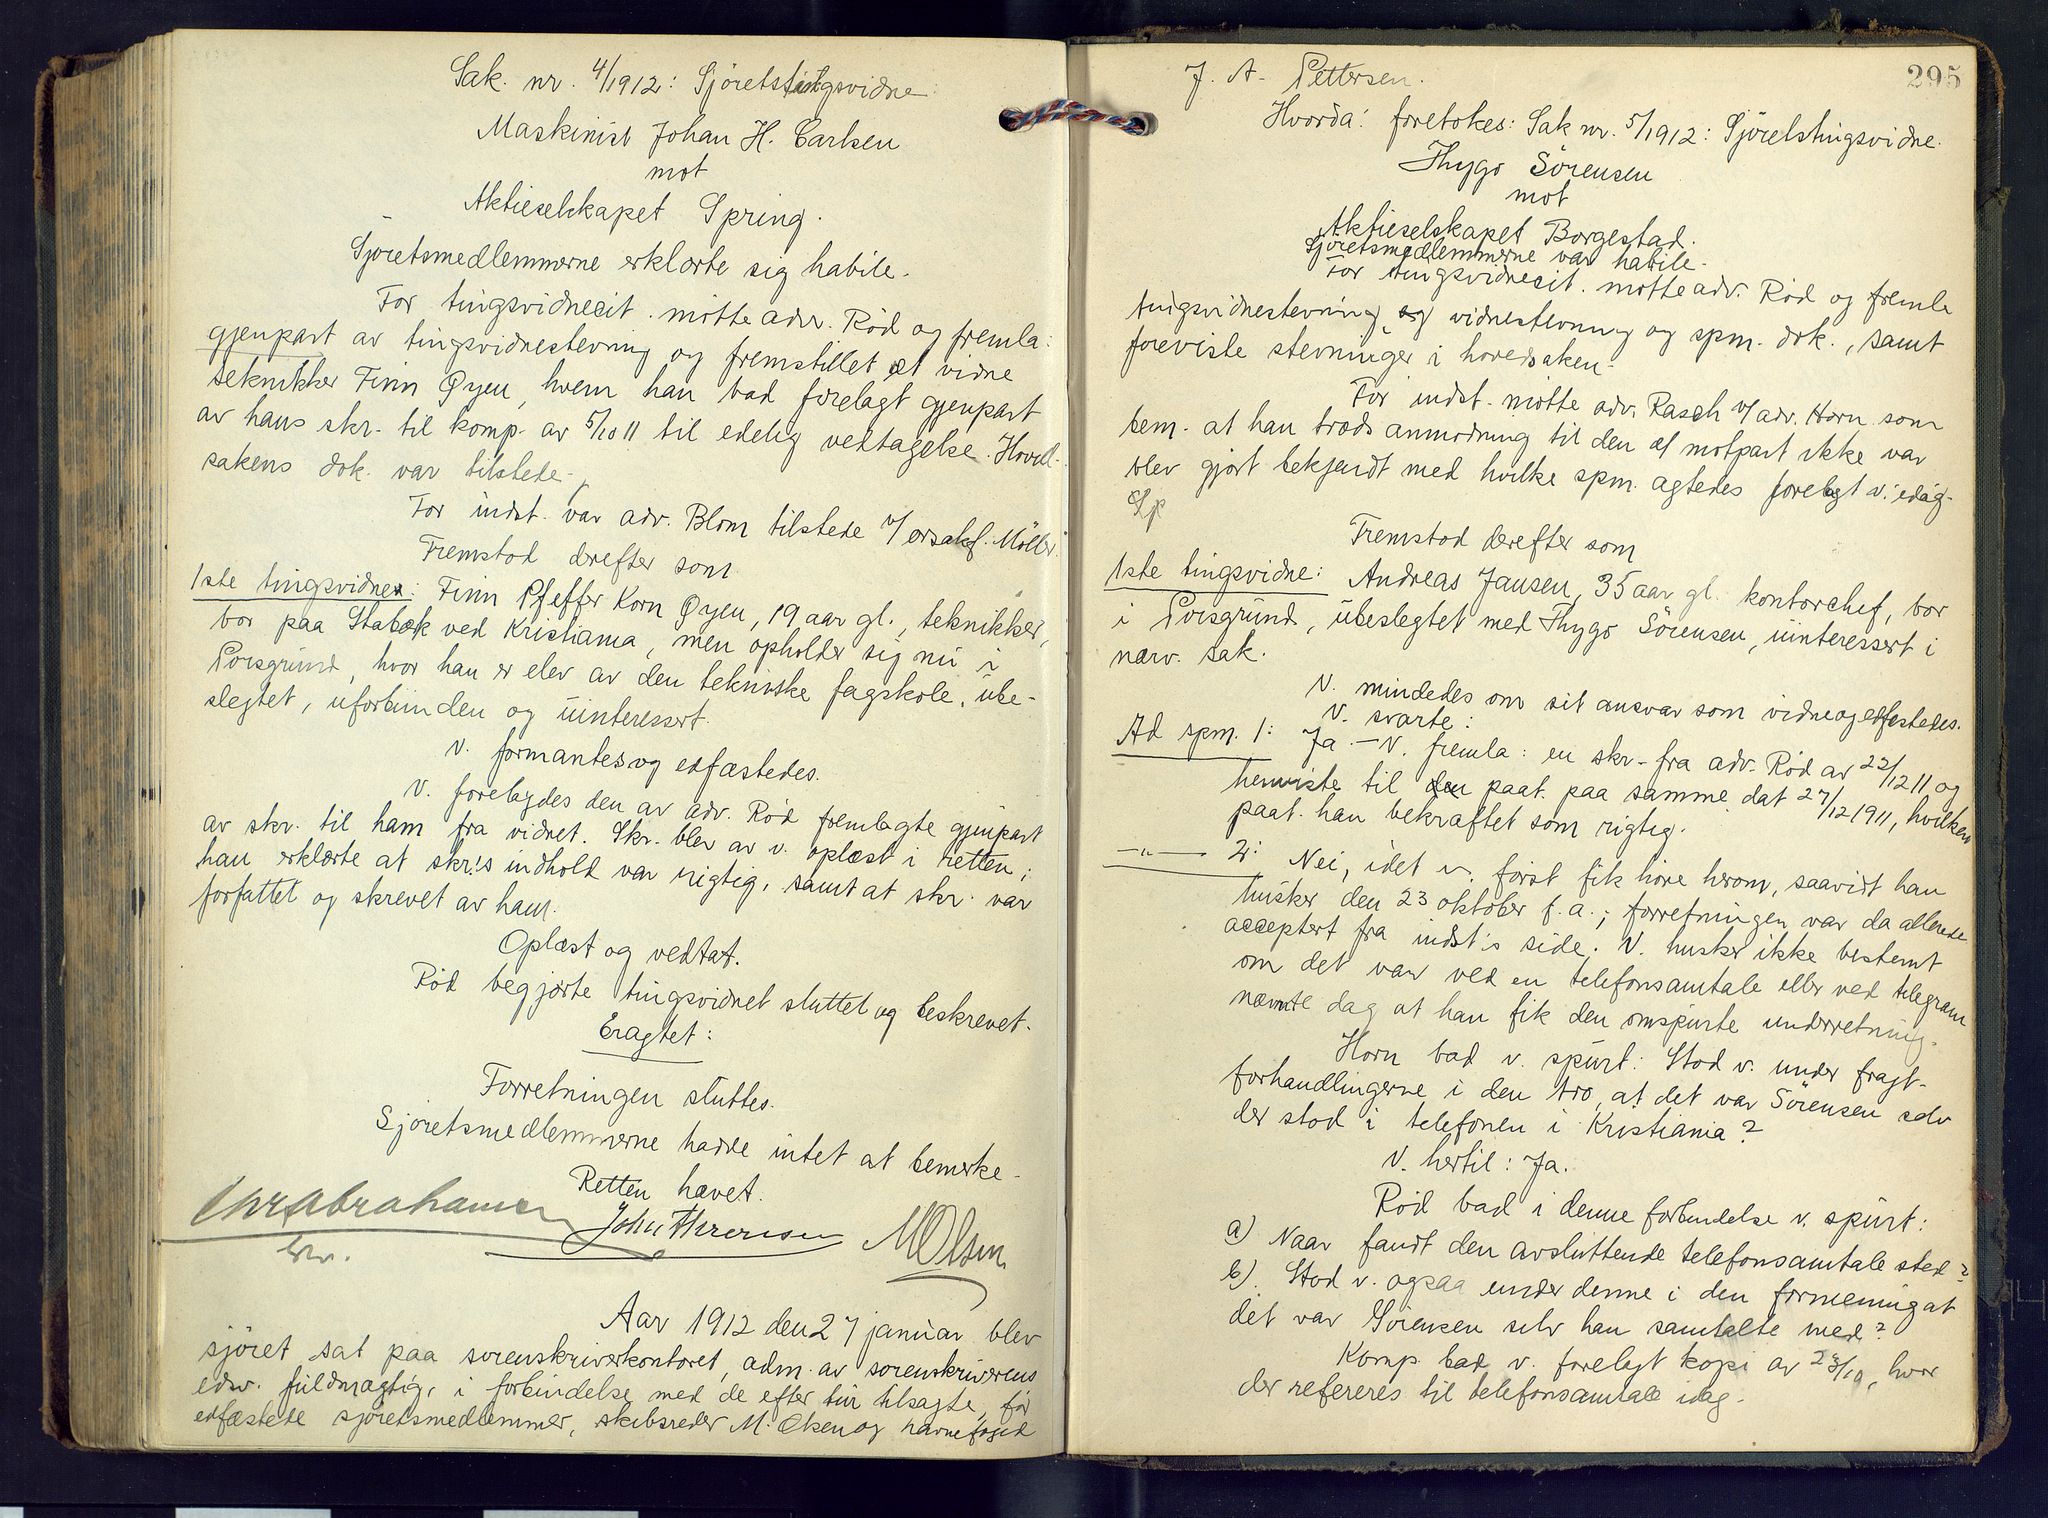 Sak. nr. 4/1912: Sjøretstingsvidne:
Maskinist Johan H. Carlsen
mot
Aktieselskapet Spring.
Sjøretsmedlemmerne erklærte sig habile.
For tingsvidnecit. møtte adv. Rød og fremla:
gjenpart av tingsvidnestevning og fremstillet et vidne
tekniker Finn Øyen, hvem han bad forelagt gjenpart
av hans skr. til komp. av 5/10 11 til edelig vedtagelse. Hoved-
sakens dok. var tilstede.
For indst. var adv. Blom tilstede v/ orsakf. Møller.
Fremstod derefter som
1ste tingsvidne: Finn Pfeffer Korn Øyen, 19 aar gl., tekniker,
bor paa Stabæk ved Kristiania, men opholder sig nu i
Porsgrund, hvor han er elev av den tekniske fagskole, ube-
slegtet, uforbunden og uinteressert.
V. formantes og edfæstedes.
V. forelagdes den av adv. Rød fremlagte gjenpart
av skr. til ham fra vidnet. Skr. blev av v. oplæst i retten;
han erklærte at skr.'s indhold var rigtig, samt at skr. var
forfattet og skrevet av ham.
Oplæst og vedtat.
Rød begjærte tingsvidnet sluttet og beskrevet.
Eragtet:
Forretningen sluttes.
Sjøretsmedlemmerne hadde intet at bemerke.
Retten hævet.
Chr Abrahamsen
John Thrensen
M Olsen
Aar 1912 den 27 januar blev
sjøret sat paa sorenskriverkontoret, adm. av sorenskriverens
edsv. fuldmægtig, i forbindelse med de efter tur tilsagte, før
edfæstede sjøretsmedlemmer, skibsreder M. Olsen og havnefoged
295
J. A. Pettersen.
Hvorda: foretokes: Sak nr. 5/1912: Sjøretstingsvidne.
Thygo Sörensen
mot
Aktieselskapet Borgestad.
Sjøretsmedlemmerne var habile.
For tingsvidnecit. møtte adv. Rød og fremla
tingsvidnestevning, og vidnestevning og spm. dok., samt
foreviste stevninger i hovedsaken.
For indst. møtte adv. Rasch v/ adv. Horn som
bem. at han trods anmodning til den af motpart ikke var
blev gjort bekjendt med hvilke spm. agtedes forelagt v. idag.
Fremstod derefter som
1ste tingsvidne: Andreas Jansen, 35 aar gl. kontorchef, bor
i Porsgrund, ubeslegtet med Thygo Sörensen, uinteressert i
nærv. sak.
V. mindedes om sit ansvar som vidne og edfestedes.
V. svarte:
Ad spm. 1: Ja. – V. fremla: en skr. fra adv. Rød av 22/12 11 og
henviste til den paat. paa samme dat 27/12 1911, hvilken
paat. han bekræftet som rigtig.
—"— 2: Nei, idet v. først fik høre herom, saavidt han
husker den 23 oktober f.a.; forretningen var da allerede
acceptert fra indst's side. V. husker ikke bestemt
om det var ved en telefonsamtale eller ved telegram
nævnte dag at han fik den omspurte underretning.
Horn bad v. spurt: Stod v. under fragt-
forhandlingerne i den tro, at det var Sörensen selv
der stod i telefonen i Kristiania?
V. hertil: Ja.
Rød bad i denne forbindelse v. spurt:
a) Naar fandt den avsluttende telefonsamtale sted?
b). Stod v. ogsaa under denne i den formening at
det var Sörensen selv han samtalte med?
Komp. bad v. forelagt kopi av 23/10, hvor
der refereres til telefonsamtale idag.